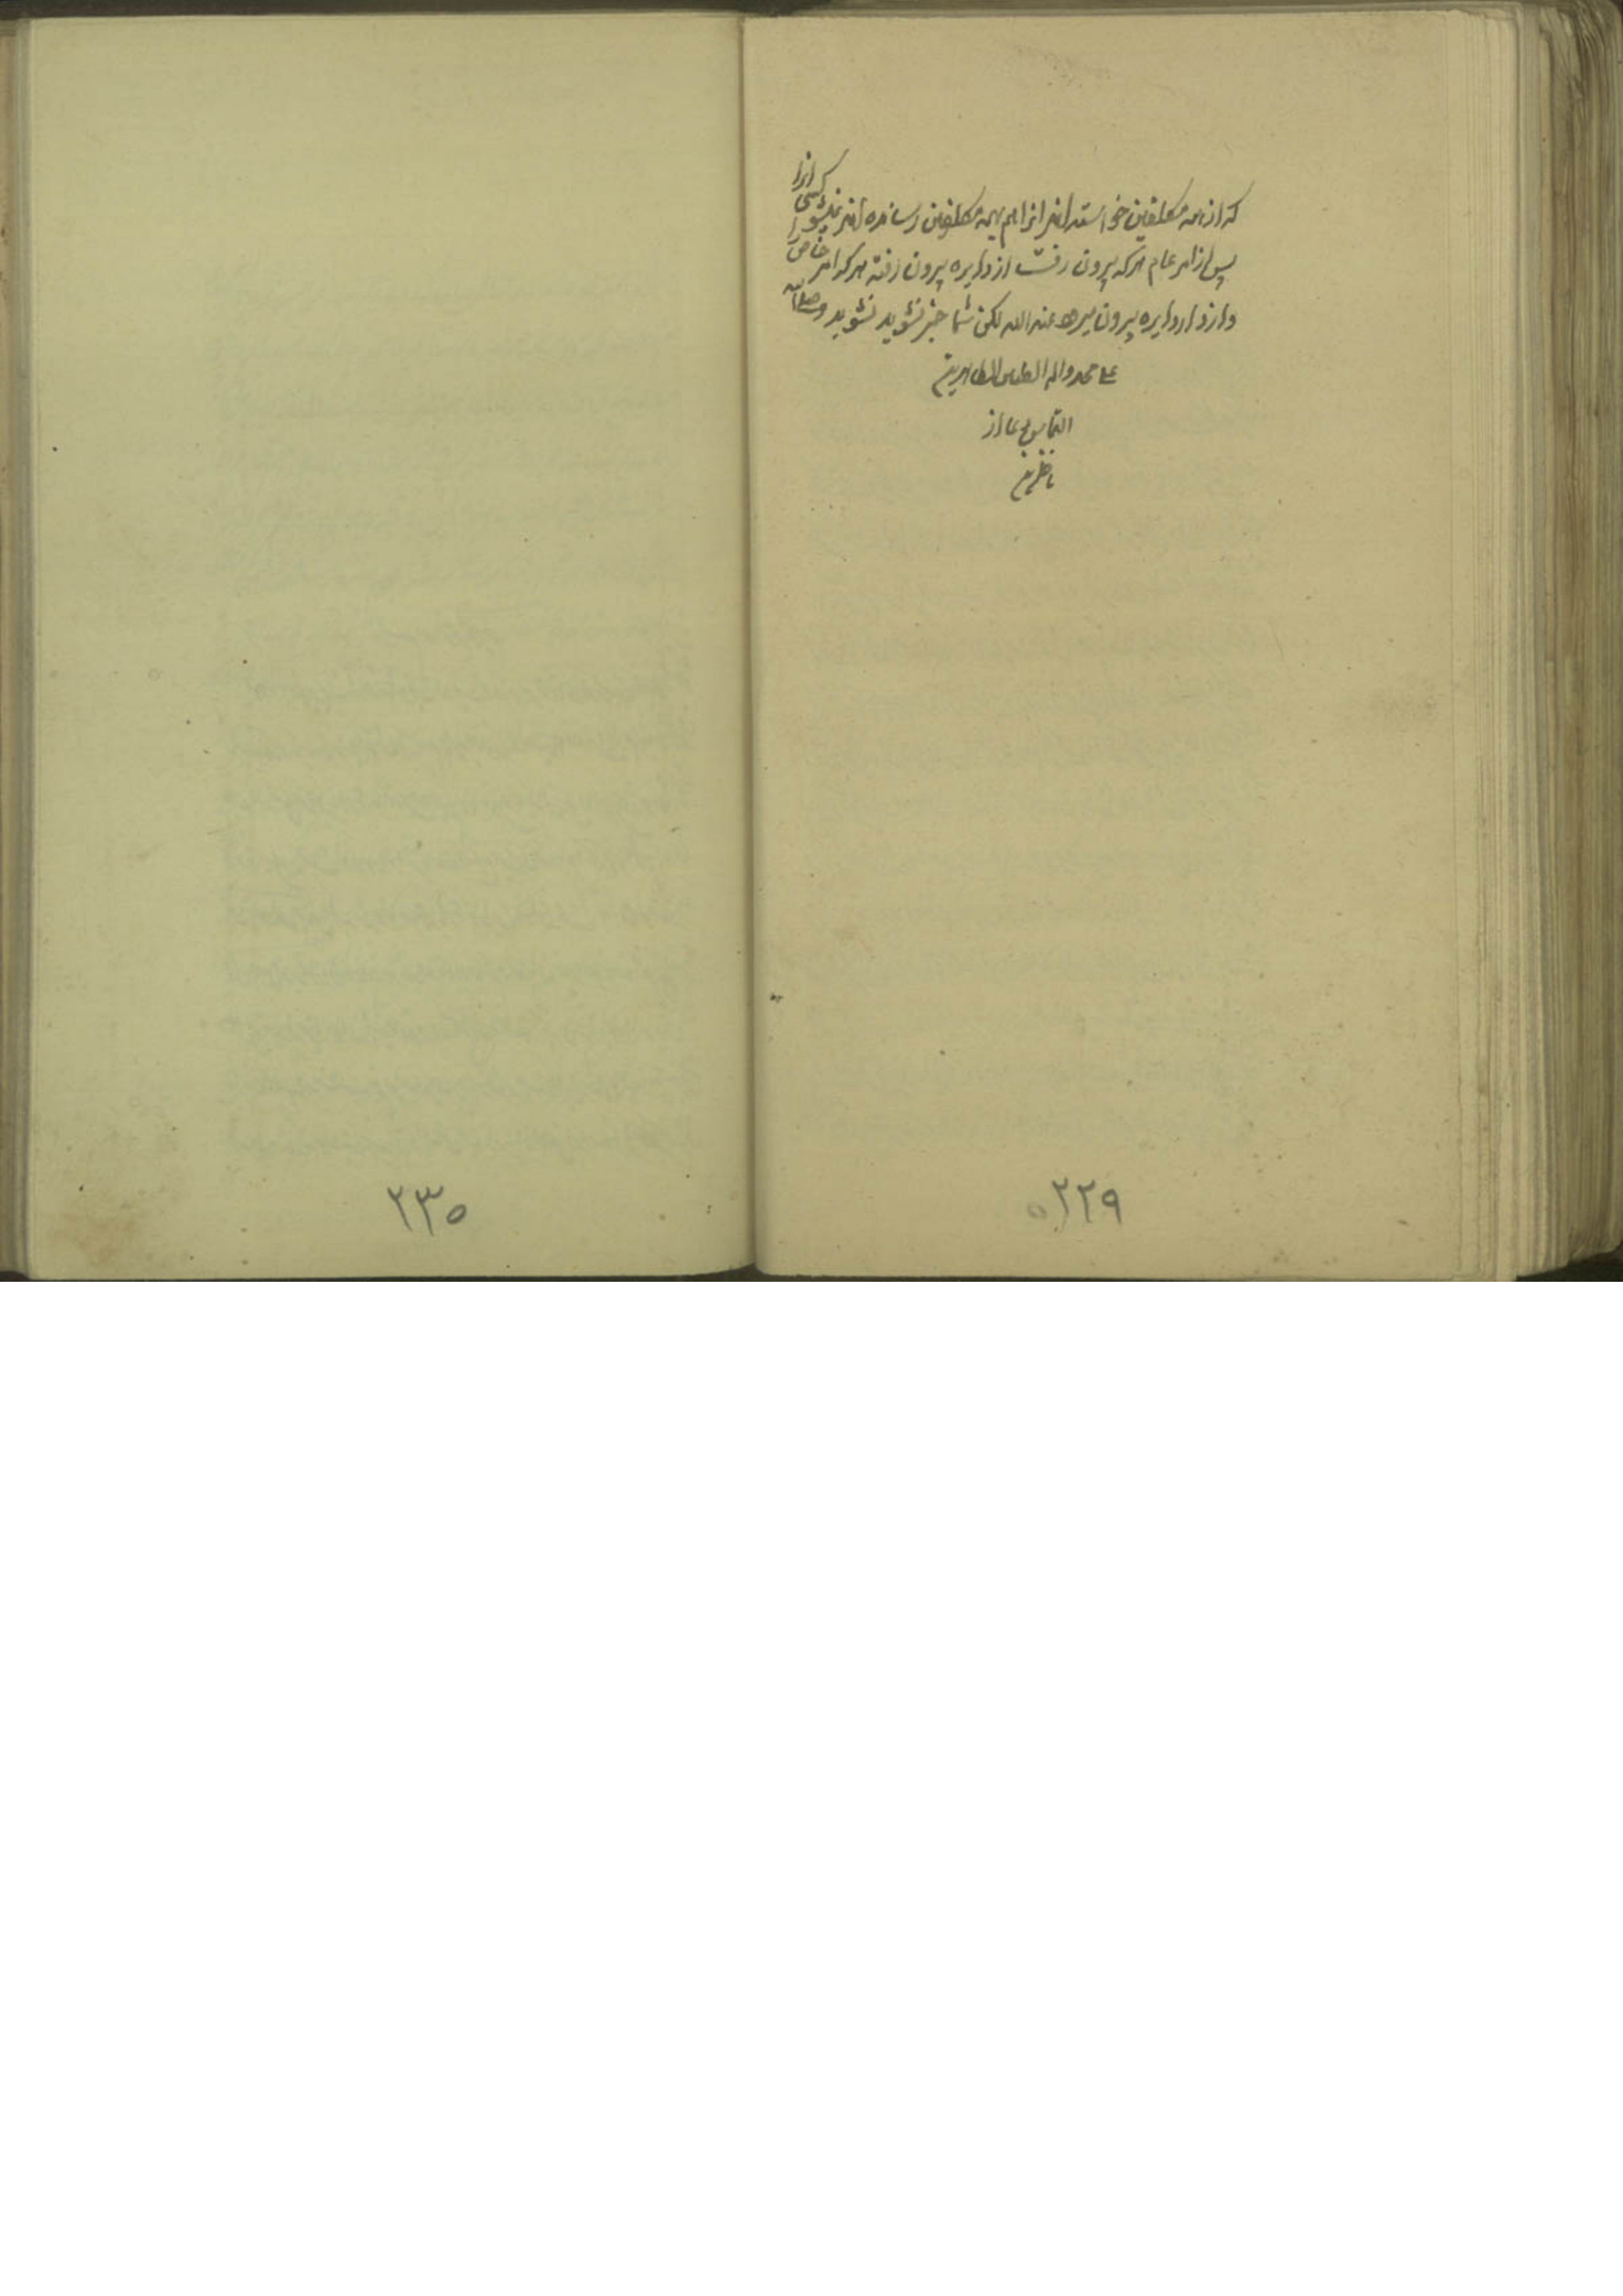 که از همه مکلفین خواسته‌اند انرا هم بهمه مکلفین رسانده‌اند کسی انرا
پس از امر عام هرکه بیرون رفت از دایره بیرون رفته هرکه امر خاص را
از دایره بیرون میرود عند الله لکن شما خبر نشوید نشوید و صلی الله
علی محمد واله الطیبین الطاهرین
التماس دعا از
ناظرین
۲۲۹
۲۳۰